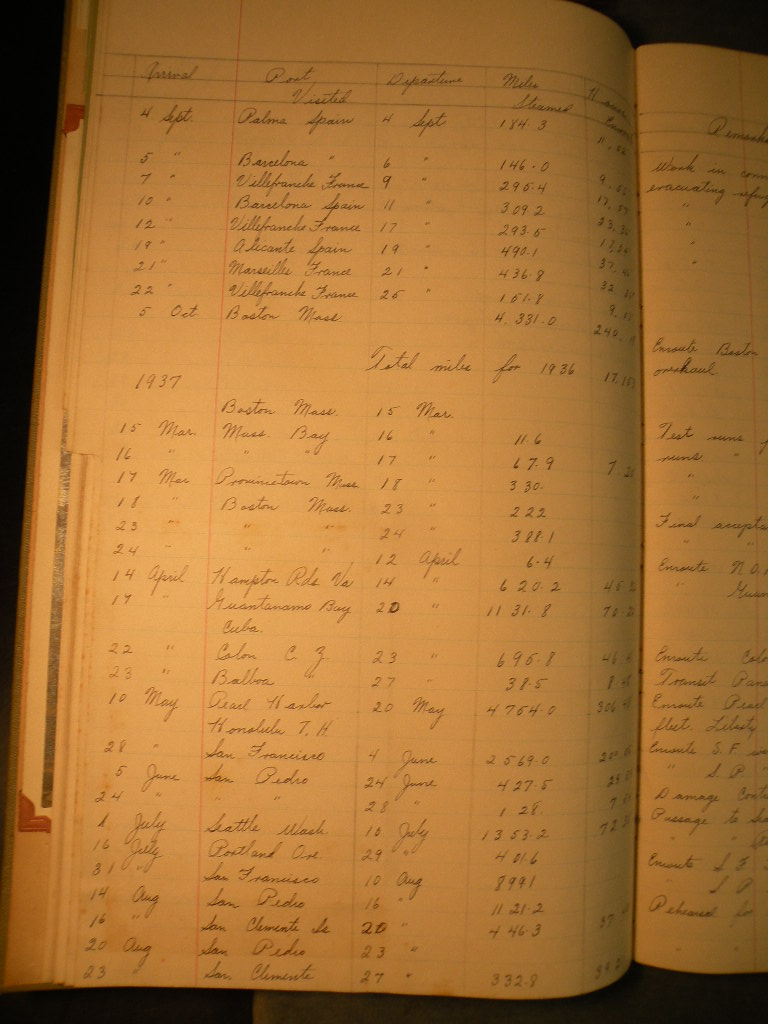 Arrival Port Departure Miles
Visited Steamed
Remarks
4 Sept. Palma Spain 4 Sept 184.3
5 " Barcelona " 6 " 146.0 Work in
7 " Villefranche France 9 " 295.4 evacuating
10 " Barcelona Spain 11 " 309.2 "
12 " Villefranche France 17 " 293.5 "
19 " Alicante Spain 19 " 490.1 "
21 " Marseilles France 21 " 436.8
22 " Villefranche France 25 " 101.8
5 Oct Boston Mass. 4,331.0 240
Enroute Boston
Total miles for 1936 overhaul
1937
Boston Mass. 15 Mar.
15 Mar. Mass. Bay 16 " 11.6 Test runs
16 " " " 17 " 67.9 runs "
17 Mar Provincetown Mass. 18 " 330. "
18 " Boston Mass. 23 " 222 "
23 " " " 24 " 388.1 Final
24 " " " 12 April 6.4 " "
14 April Hampton Rds. Va 14 " 620.2 Enroute N.O.
17 " Guantanamo Bay 20 " 1131.8 "
Cuba.
22 " Colon C. Z. 23 " 695.8 Enroute
23 " Balboa " 27 " 38.5 Transit
10 May Pearl Harbor 20 May 4754.0 Enroute Pearl
Honolulu T. H. fleet. Liberty
28 " San Francisco 4 June 2569.0 Enroute S.F.
5 June San Pedro 24 June 427.5 " S.P. "
24 " " " 28 " 128. Damage
1 July Seattle Wash 10 July 1353.2 Passage to
16 July Portland Ore. 29 " 401.6 " "
31 " San Francisco 10 Aug 899.1 Enroute S F
14 Aug San Pedro 16 " 1121.2 S P
16 " San Clemente Is 20 " 446.3 Rehearsal for
20 Aug San Pedro 23 " " "
23 " San Clemente 27 " 332.8